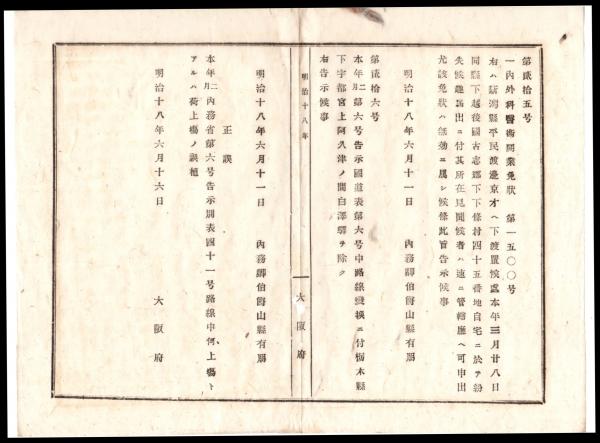 第貳拾五号
一内外科醫術開業免狀　第一五〇〇号
右ハ新潟縣平民渡邉京才ヘ下渡置候處本年三月廿八日
同縣下越後國古志郡下下條村四十五番地自宅ニ於テ紛
失候趣届出ニ付其所在見聞候者ハ速ニ管轄廳ヘ可申出
尤該免狀ハ無効ニ屬シ候條此旨告示候事
明治十八年六月十一日　內務卿伯爵山縣有朋
第貳拾六号
本年二月第六号告示國道表第六号中路線變換ニ付栃木縣
下宇都宮上阿久津ノ間白澤驛ヲ除ク
右告示候事
明治十八年
大阪府
明治十八年六月十一日　內務卿伯爵山縣有朋
正誤
本年二月內務省第六号告示別表四十一号路線中何、上場ト
アルハ荷上場ノ誤植
明治十八年六月十六日　大阪府